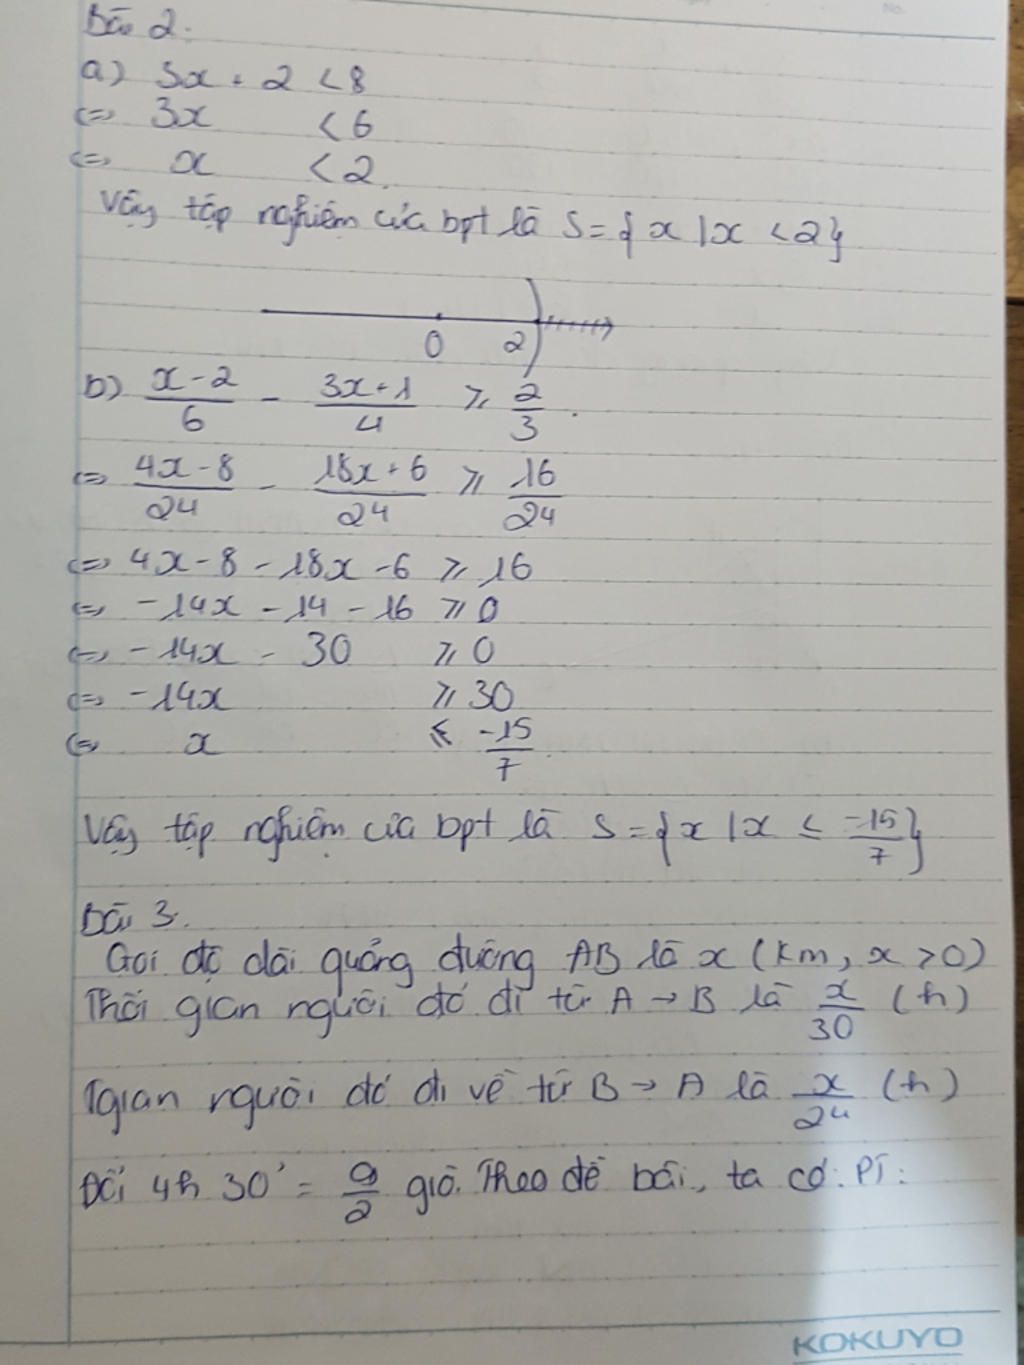 Bài 2.
a) 3x + 2 < 8
<=> 3x < 6
<=> x < 2
Vậy tập nghiệm của bpt là S = { x | x < 2 }
0 2
b) \frac{x-2}{6} - \frac{3x+1}{4} ⩾ \frac{2}{3}
<=> \frac{4x-8}{24} - \frac{18x+6}{24} ⩾ \frac{16}{24}
<=> 4x - 8 - 18x - 6 ⩾ 16
<=> -14x - 14 - 16 ⩾ 0
<=> -14x - 30 ⩾ 0
<=> -14x ⩾ 30
<=> x ⩽ \frac{-15}{7}
Vậy tập nghiệm của bpt là S = { x | x ≤ \frac{-15}{7} }
Bài 3.
Gọi độ dài quảng đường AB là x (km, x > 0)
Thời gian người đó đi từ A → B là \frac{x}{30} (h)
Tgian người đó đi về từ B → A là \frac{x}{24} (h)
Đổi 4h 30' = \frac{9}{2} giờ. Theo đề bài, ta có PT:
KOKUYO